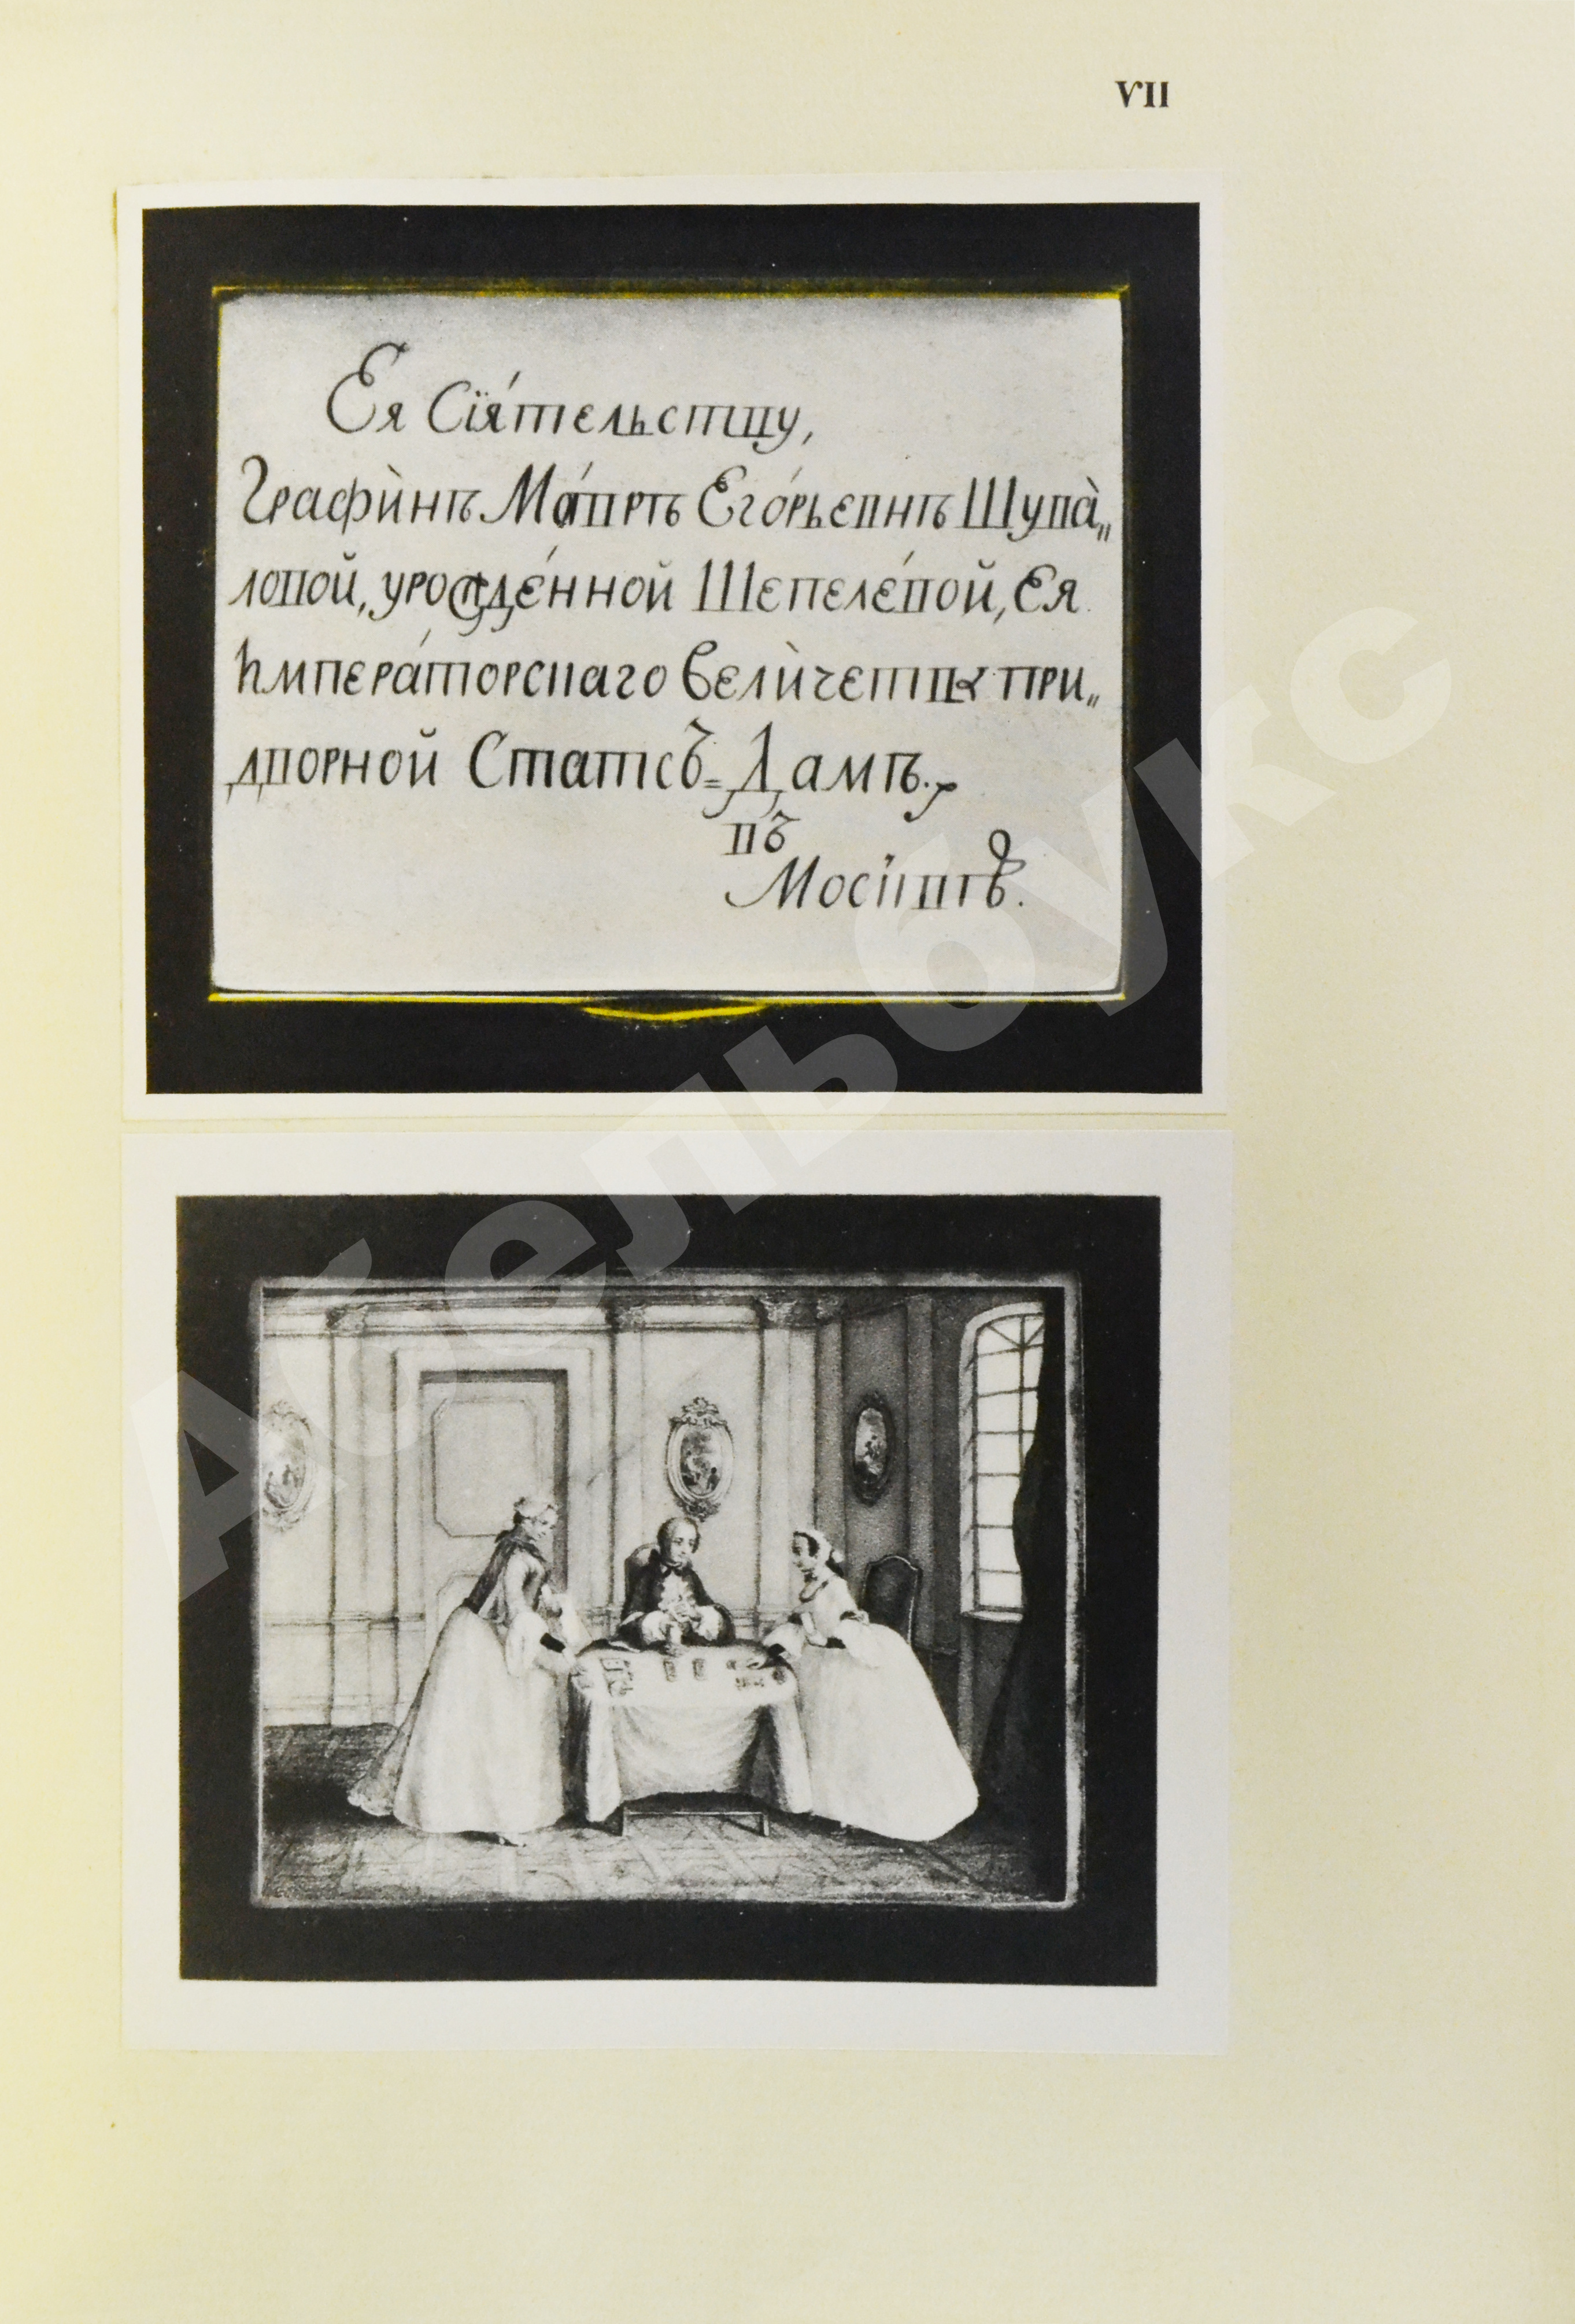 VII
Ея Сія́тельству,
Графи̇нѣ Ма́врѣ Его́рьевнѣ Шува̀„
ловой, урожде́нной Шепеле́вой, Ея
Импера́торскаго Вели̇чества при„
дворной Статсъ=Дамѣ.
въ
Москвѣ.
Асельбукс